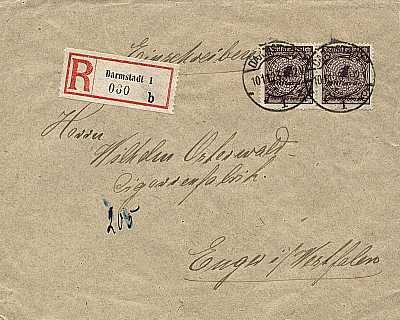 Einschreiben
R
Darmstadt 1
060
b
Herrn
Wilhelm Osterwald
Cigarrenfabrik.
205
Enger i/Westfalen